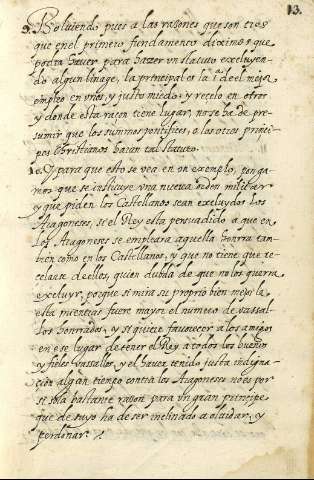 13.
Bolviendo pues a las razones que son tres
que en el primero fundamento diximos que
podia haver para hazer un statuto excluyen-
do algun linage, la principal es la 1.ª de el mejor
empleo en unos, y justo miedo, y recelo en otros
y donde esta raçon tiene lugar, no se ha de pre-
sumir que los summos pontifices, o los otros princi-
pes Christianos haran tal statuto.
Y para que esto se vea en un exemplo, ponga-
mos que se instituye una nueva orden militar
y que piden los Castellanos sean excluydos los
Aragoneses, si el Rey esta persuadido a que en
los Aragoneses se empleara aquella honrra tan-
bien como en los Castellanos, y que no tiene que re-
celarse de ellos, quien dubda de que no los querra
excluyr, porque si mira su proprio bien mejor le
esta mientras fuere mayor el numero de vassal-
los honrrados, y si quiere favorecer a los amigos
en ese lugar de tener el Rey a todos los buenos
y fieles vassallos, y el haver tenido justa indigna-
cion algun tiempo contra los Aragoneses no es por
si sola bastante razon para un gran principe
que de suyo ha de ser inclinado a olvidar, y
perdonar.